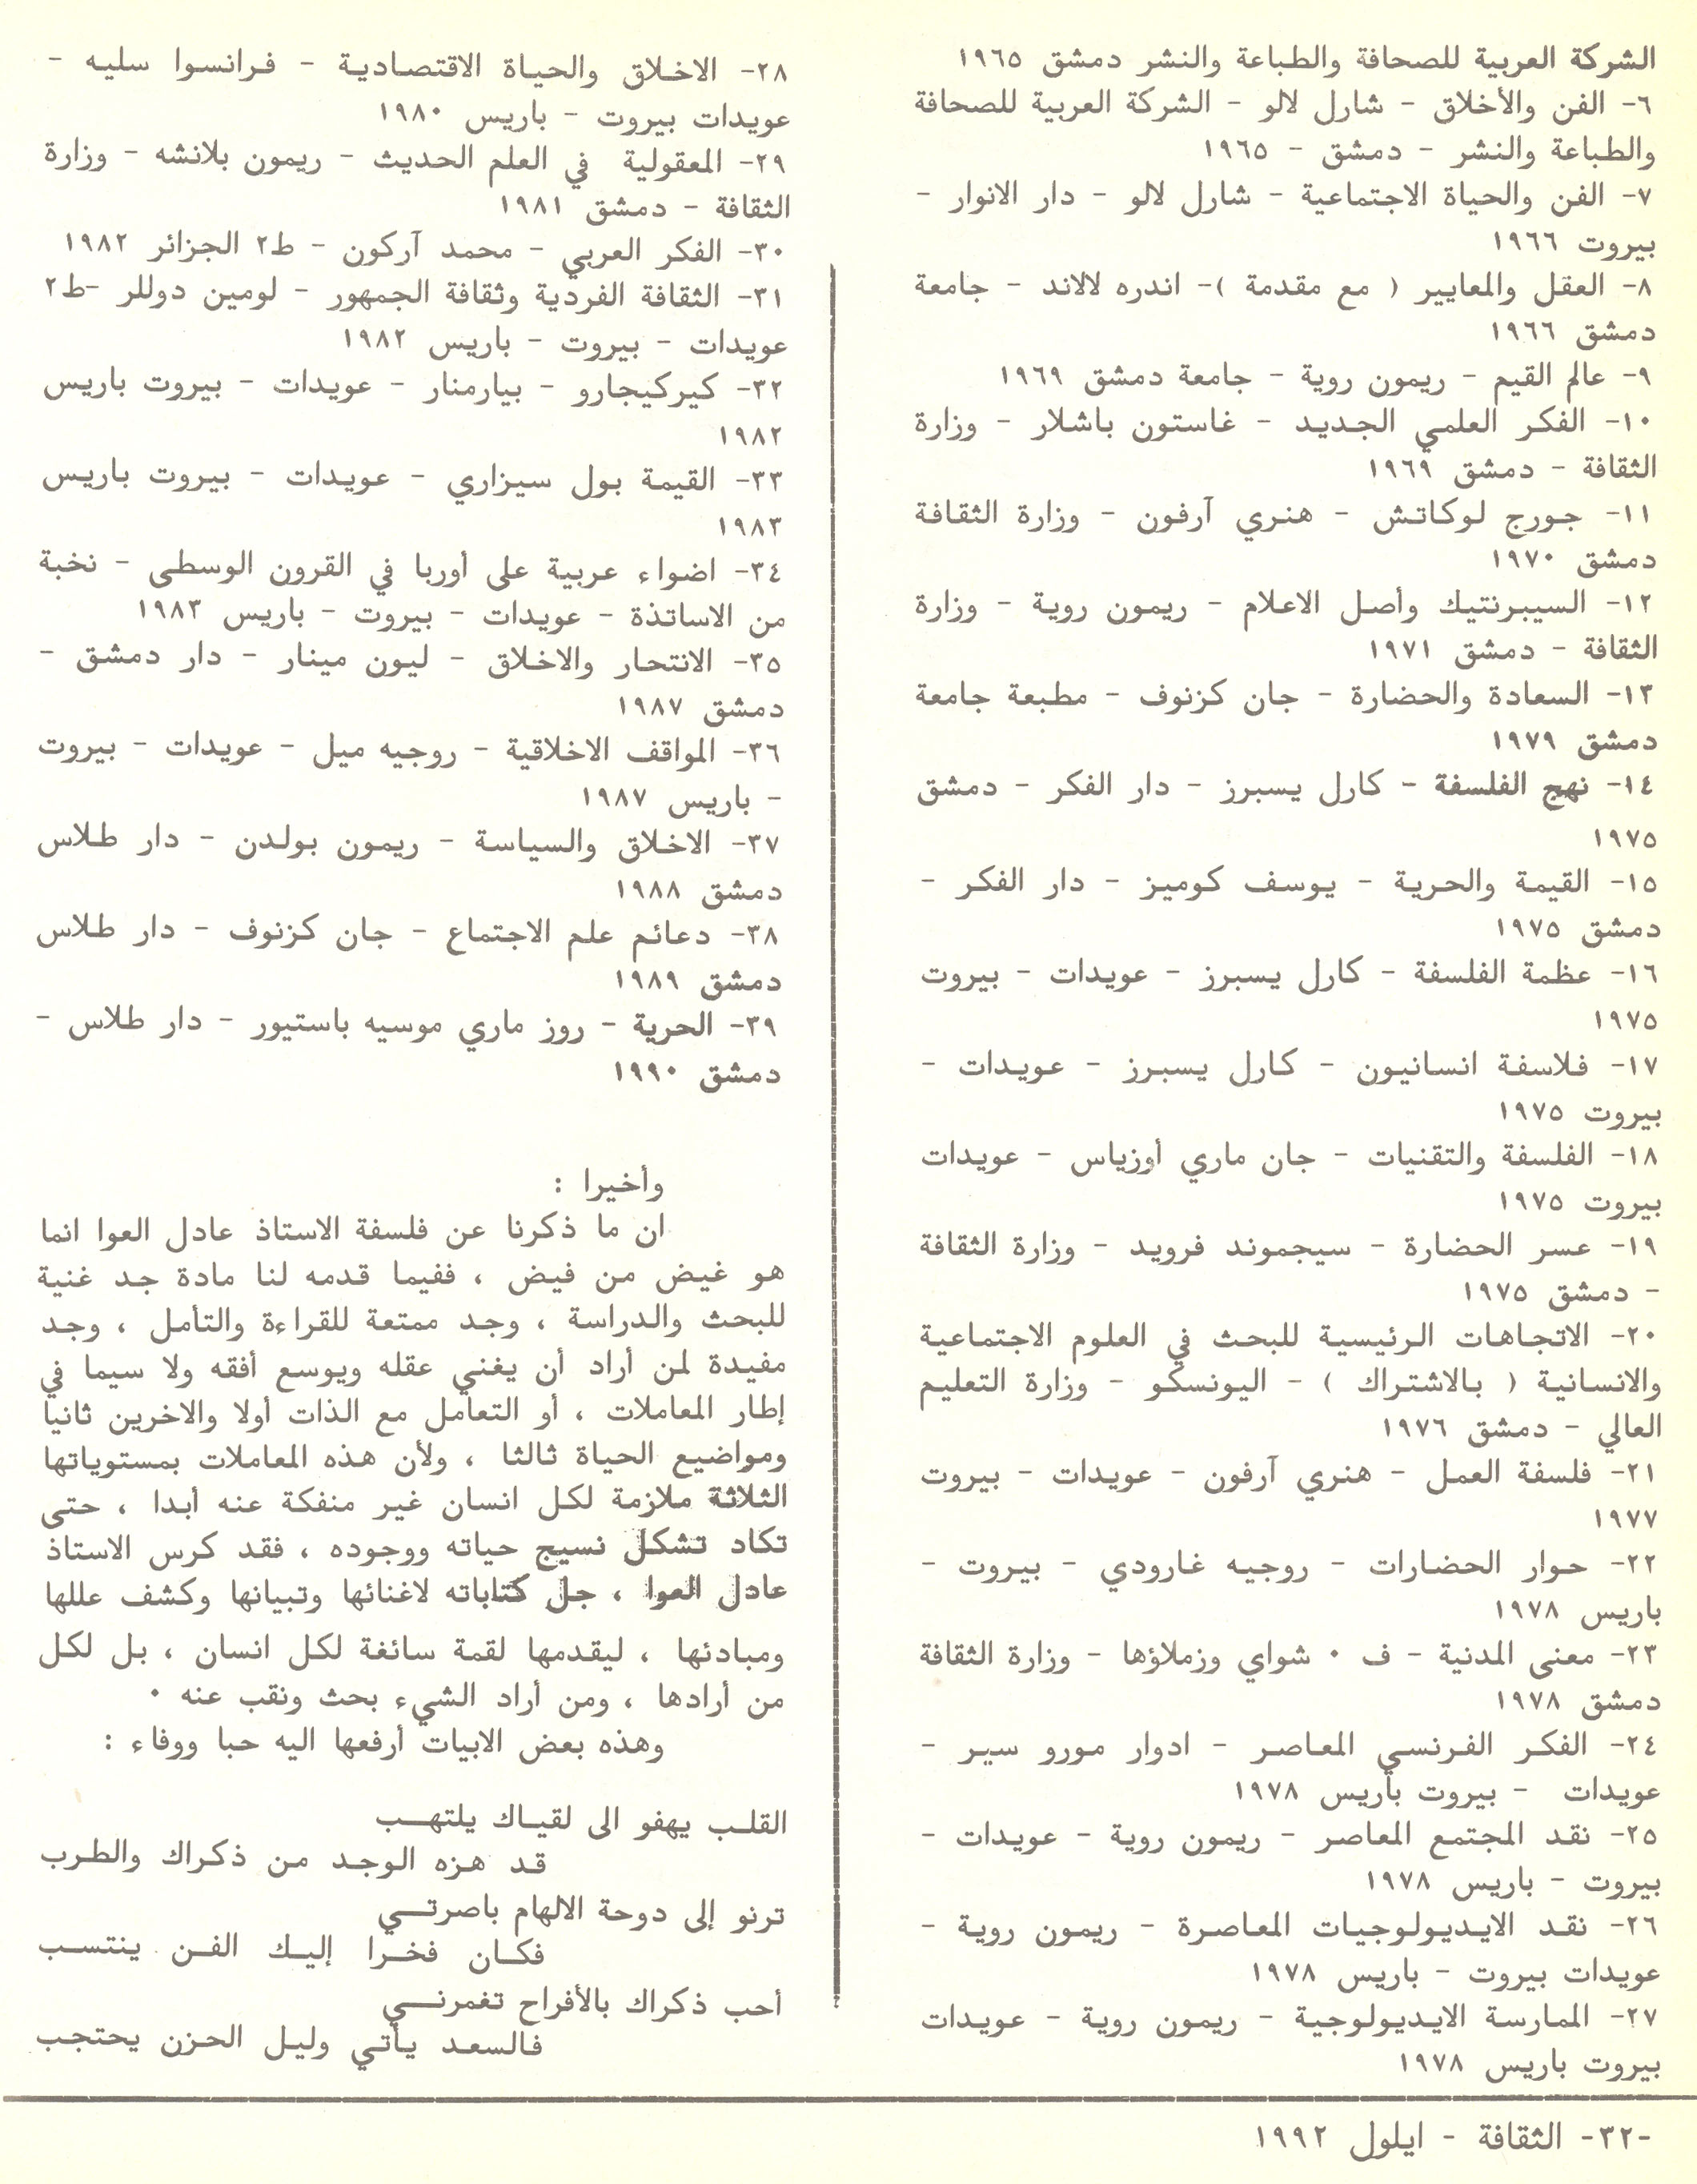 الشركة العربية للصحافة والطباعة والنشر دمشق ١٩٦٥
٦- الفن والأخلاق - شارل لالو - الشركة العربية للصحافة
والطباعة والنشر - دمشق - ١٩٦٥
٧- الفن والحياة الاجتماعية - شارل لالو - دار الانوار -
بيروت ١٩٦٦
٨- العقل والمعايير ( مع مقدمة )- اندره لالاند - جامعة
دمشق ١٩٦٦
٩- عالم القيم - ريمون روية - جامعة دمشق ١٩٦٩
١٠- الفكر العلمي الجديد - غاستون باشلار - وزارة
الثقافة - دمشق ١٩٦٩
١١- جورج لوكاتش - هنري آرفون - وزارة الثقافة
دمشق ١٩٧٠
١٢- السيبرنتيك وأصل الاعلام - ريمون روية - وزارة
الثقافة - دمشق ١٩٧١
١٣- السعادة والحضارة - جان كزنوف - مطبعة جامعة
دمشق ١٩٧٩
١٤- نهج الفلسفة - كارل يسبرز - دار الفكر - دمشق
١٩٧٥
١٥- القيمة والحرية - يوسف كوميز - دار الفكر -
دمشق ١٩٧٥
١٦- عظمة الفلسفة - كارل يسبرز - عويدات - بيروت
١٩٧٥
١٧- فلاسفة انسانيون - كارل يسبرز - عويدات -
بيروت ١٩٧٥
١٨- الفلسفة والتقنيات - جان ماري أوزياس - عويدات
بيروت ١٩٧٥
١٩- عسر الحضارة - سيجموند فرويد - وزارة الثقافة
- دمشق ١٩٧٥
٢٠- الاتجاهات الرئيسية للبحث في العلوم الاجتماعية
والانسانية ( بالاشتراك ) - اليونسكو - وزارة التعليم
العالي - دمشق ١٩٧٦
٢١- فلسفة العمل - هنري آرفون - عويدات - بيروت
١٩٧٧
٢٢- حوار الحضارات - روجيه غارودي - بيروت -
باريس ١٩٧٨
٢٣- معنى المدنية - ف ٠ شواي وزملاؤها - وزارة الثقافة
دمشق ١٩٧٨
٢٤- الفكر الفرنسي المعاصر - ادوار مورو سير -
عويدات - بيروت باريس ١٩٧٨
٢٥- نقد المجتمع المعاصر - ريمون روية - عويدات -
بيروت - باريس ١٩٧٨
٢٦- نقد الايديولوجيات المعاصرة - ريمون روية -
عويدات بيروت - باريس ١٩٧٨
٢٧- الممارسة الايديولوجية - ريمون روية - عويدات
بيروت باريس ١٩٧٨
٢٨- الاخلاق والحياة الاقتصادية - فرانسوا سليه -
عويدات بيروت - باريس ١٩٨٠
٢٩- المعقولية في العلم الحديث - ريمون بلانشه - وزارة
الثقافة - دمشق ١٩٨١
٣٠- الفكر العربي - محمد آركون - ط٢ الجزائر ١٩٨٢
٣١- الثقافة الفردية وثقافة الجمهور - لومين دوللر -ط٢
عويدات - بيروت - باريس ١٩٨٢
٣٢- كيركيجارو - بيارمنار - عويدات - بيروت باريس
١٩٨٢
٣٣- القيمة بول سيزاري - عويدات - بيروت باريس
١٩٨٣
٣٤- اضواء عربية على أوربا في القرون الوسطى - نخبة
من الاساتذة - عويدات - بيروت - باريس ١٩٨٣
٣٥- الانتحار والاخلاق - ليون مينار - دار دمشق -
دمشق ١٩٨٧
٣٦- المواقف الاخلاقية - روجيه ميل - عويدات - بيروت
- باريس ١٩٨٧
٣٧- الاخلاق والسياسة - ريمون بولدن - دار طلاس
دمشق ١٩٨٨
٣٨- دعائم علم الاجتماع - جان كزنوف - دار طلاس
دمشق ١٩٨٩
٣٩- الحرية - روز ماري موسيه باستيور - دار طلاس -
دمشق ١٩٩٠
وأخيرا :
ان ما ذكرنا عن فلسفة الاستاذ عادل العوا انما
هو غيض من فيض ، ففيما قدمه لنا مادة جد غنية
للبحث والدراسة ، وجد ممتعة للقراءة والتأمل ، وجد
مفيدة لمن أراد أن يغني عقله ويوسع أفقه ولا سيما في
إطار المعاملات ، أو التعامل مع الذات أولا والاخرين ثانيا
ومواضيع الحياة ثالثا ، ولأن هذه المعاملات بمستوياتها
الثلاثة ملازمة لكل انسان غير منفكة عنه أبدا ، حتى
تكاد تشكل نسيج حياته ووجوده ، فقد كرس الاستاذ
عادل العوا ، جل كتاباته لاغنائها وتبيانها وكشف عللها
ومبادئها ، ليقدمها لقمة سائغة لكل انسان ، بل لكل
من أرادها ، ومن أراد الشيء بحث ونقب عنه ٠
وهذه بعض الابيات أرفعها اليه حبا ووفاء :
القلب يهفو الى لقياك يلتهب
قد هزه الوجد من ذكراك والطرب
ترنو إلى دوحة الالهام باصرتي
فكان فخرا إليك الفن ينتسب
أحب ذكراك بالأفراح تغمرني
فالسعد يأتي وليل الحزن يحتجب
-٣٢- الثقافة - ايلول ١٩٩٢